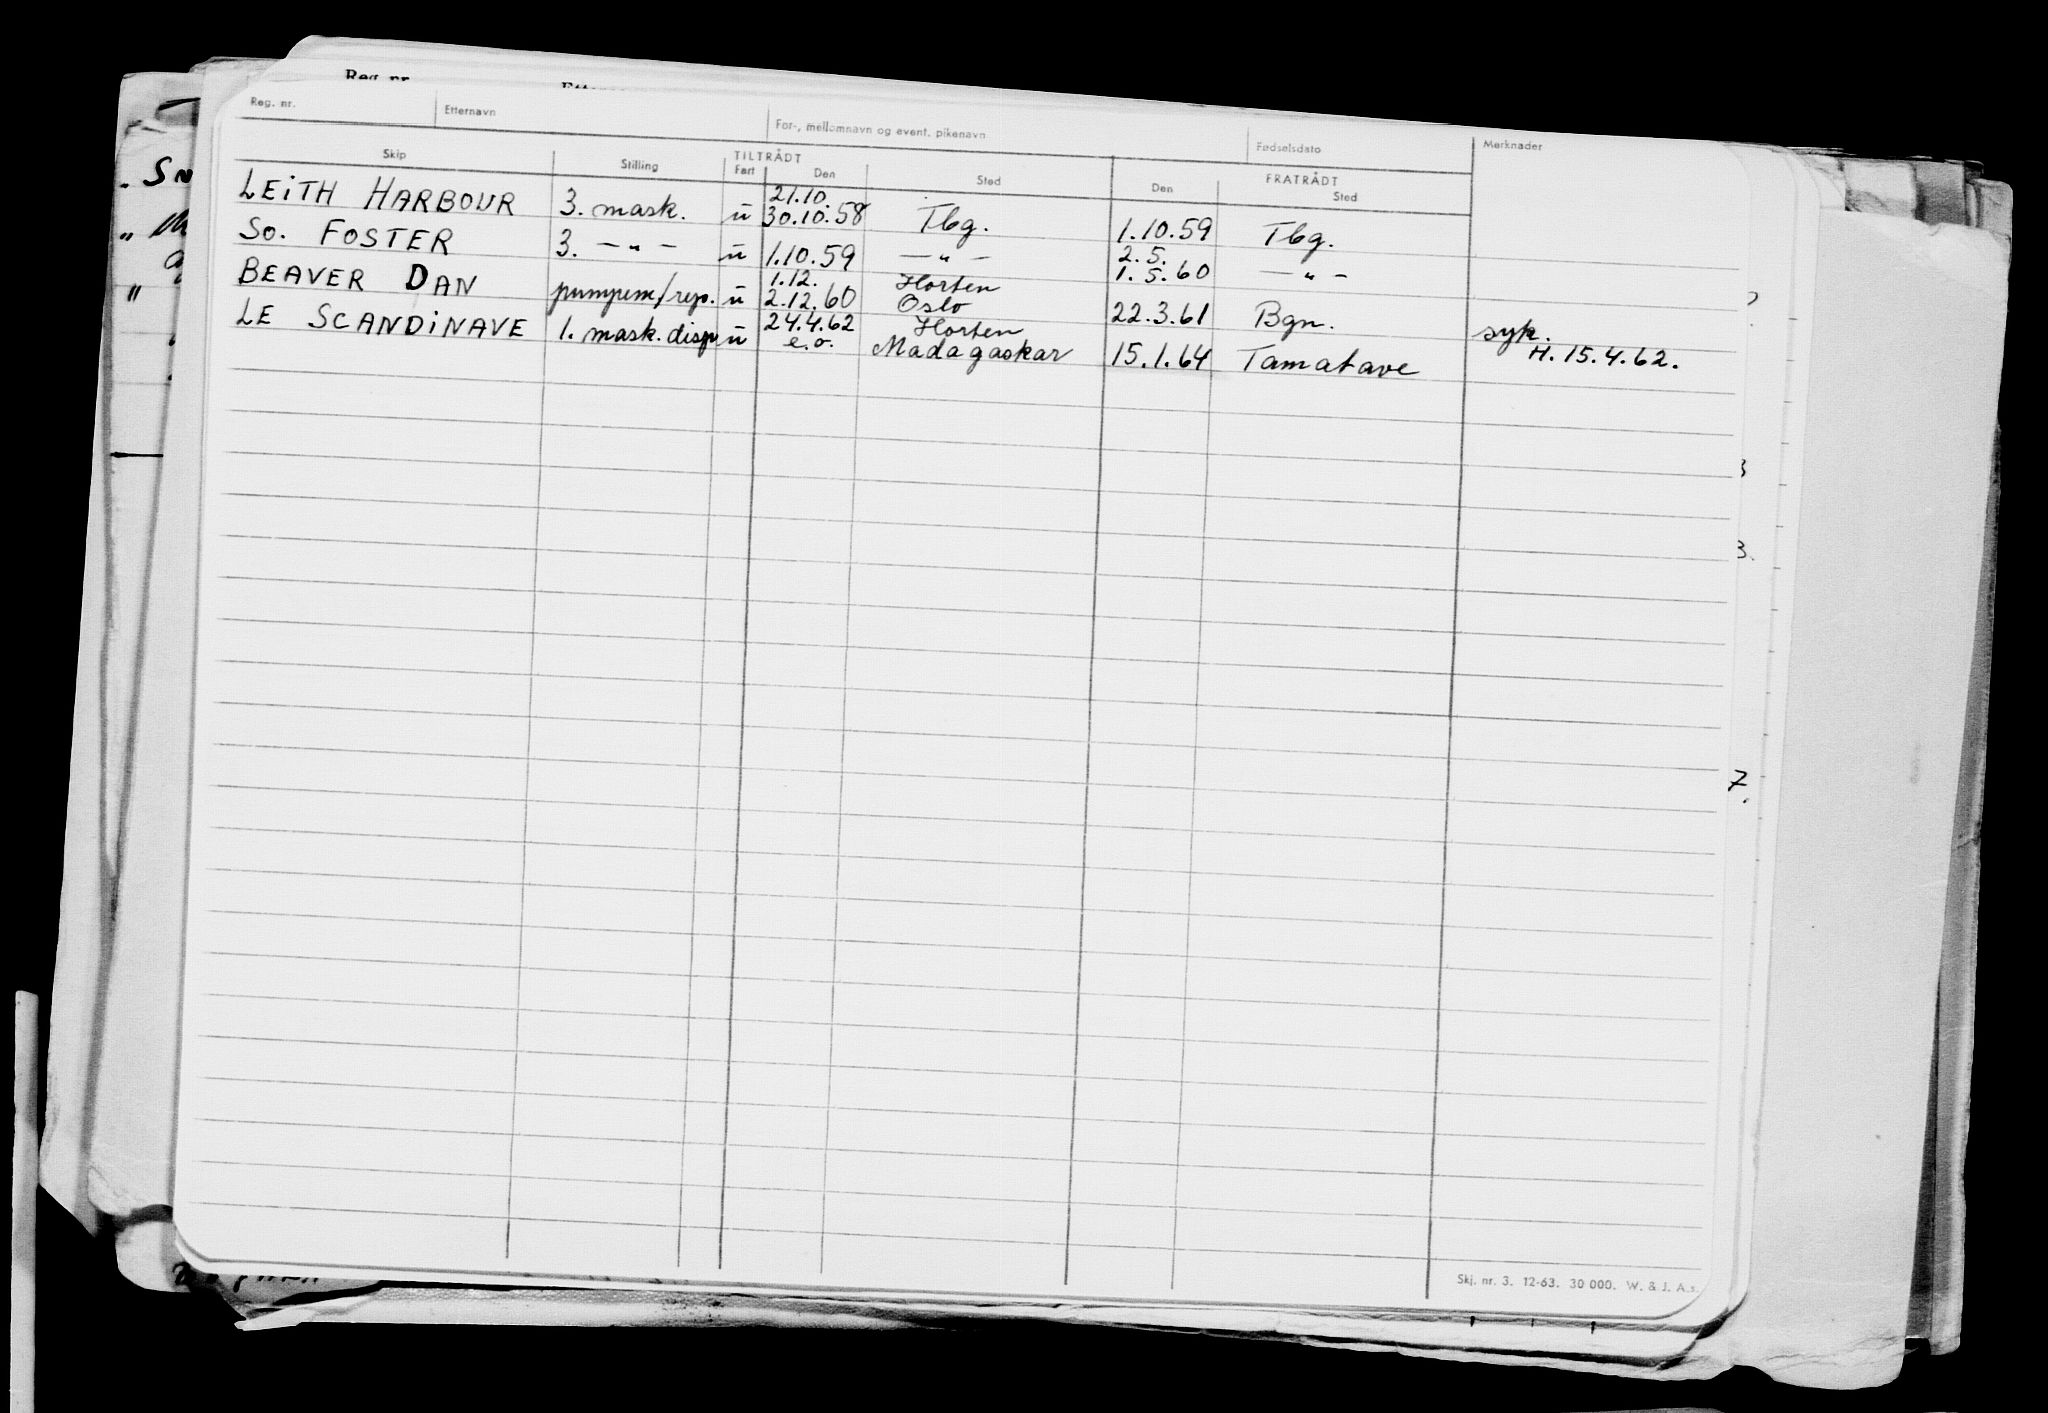 Reg. nr.
Reg. nr. Etternavn For-, mellomnavn og event. pikenavn Fødselsdato Merknader
TILTRÅDT FRATRÅDT
Skip Stilling Fart Den Sted Den Sted
21.10.
LEiTH HARBOUR 3. mask. u 30.10.58 Tbg. 1.10.59 Tbg.
2.5.
So. FOSTER 3. — " — u 1.10.59 — " — 1.5.60 — " —
1.12. Horten
BEAVER DAN pumpem/rep. u 2.12.60 Oslo 22.3.61 Bgn. syk.
24.4.62 Horten H. 15.4.62.
LE SCANDiNAVE 1. mask. disp u e.o. Madagaskar 15.1.64 Tamatave
Skj. nr. 3. 12-63. 30 000. W. & J. A.s.